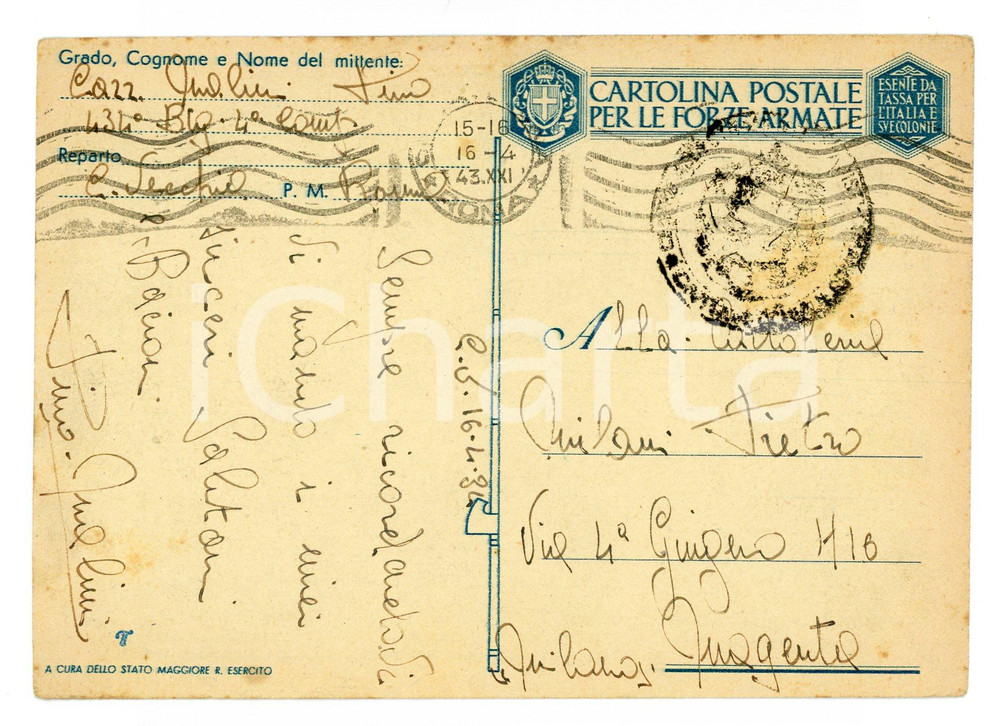 Grado, Cognome e Nome del mittente:
Pino
434ª Btg. 4ª
Reparto
P. M. Roma
CARTOLINA POSTALE
PER LE FORZE ARMATE
ESENTE DA
TASSA PER
L'ITALIA E
SVE COLONIE
15-16
16-4
43.XXI
ROMA
C.V. 16.4.
Sempre ricordandovi
Vi mando i miei
sinceri Saluti
e Bacioni
Pino
Alla
Milani Pietro
Via 4ª Giugno N 16
Magenta
Milano
A CURA DELLO STATO MAGGIORE R. ESERCITO
iCharta